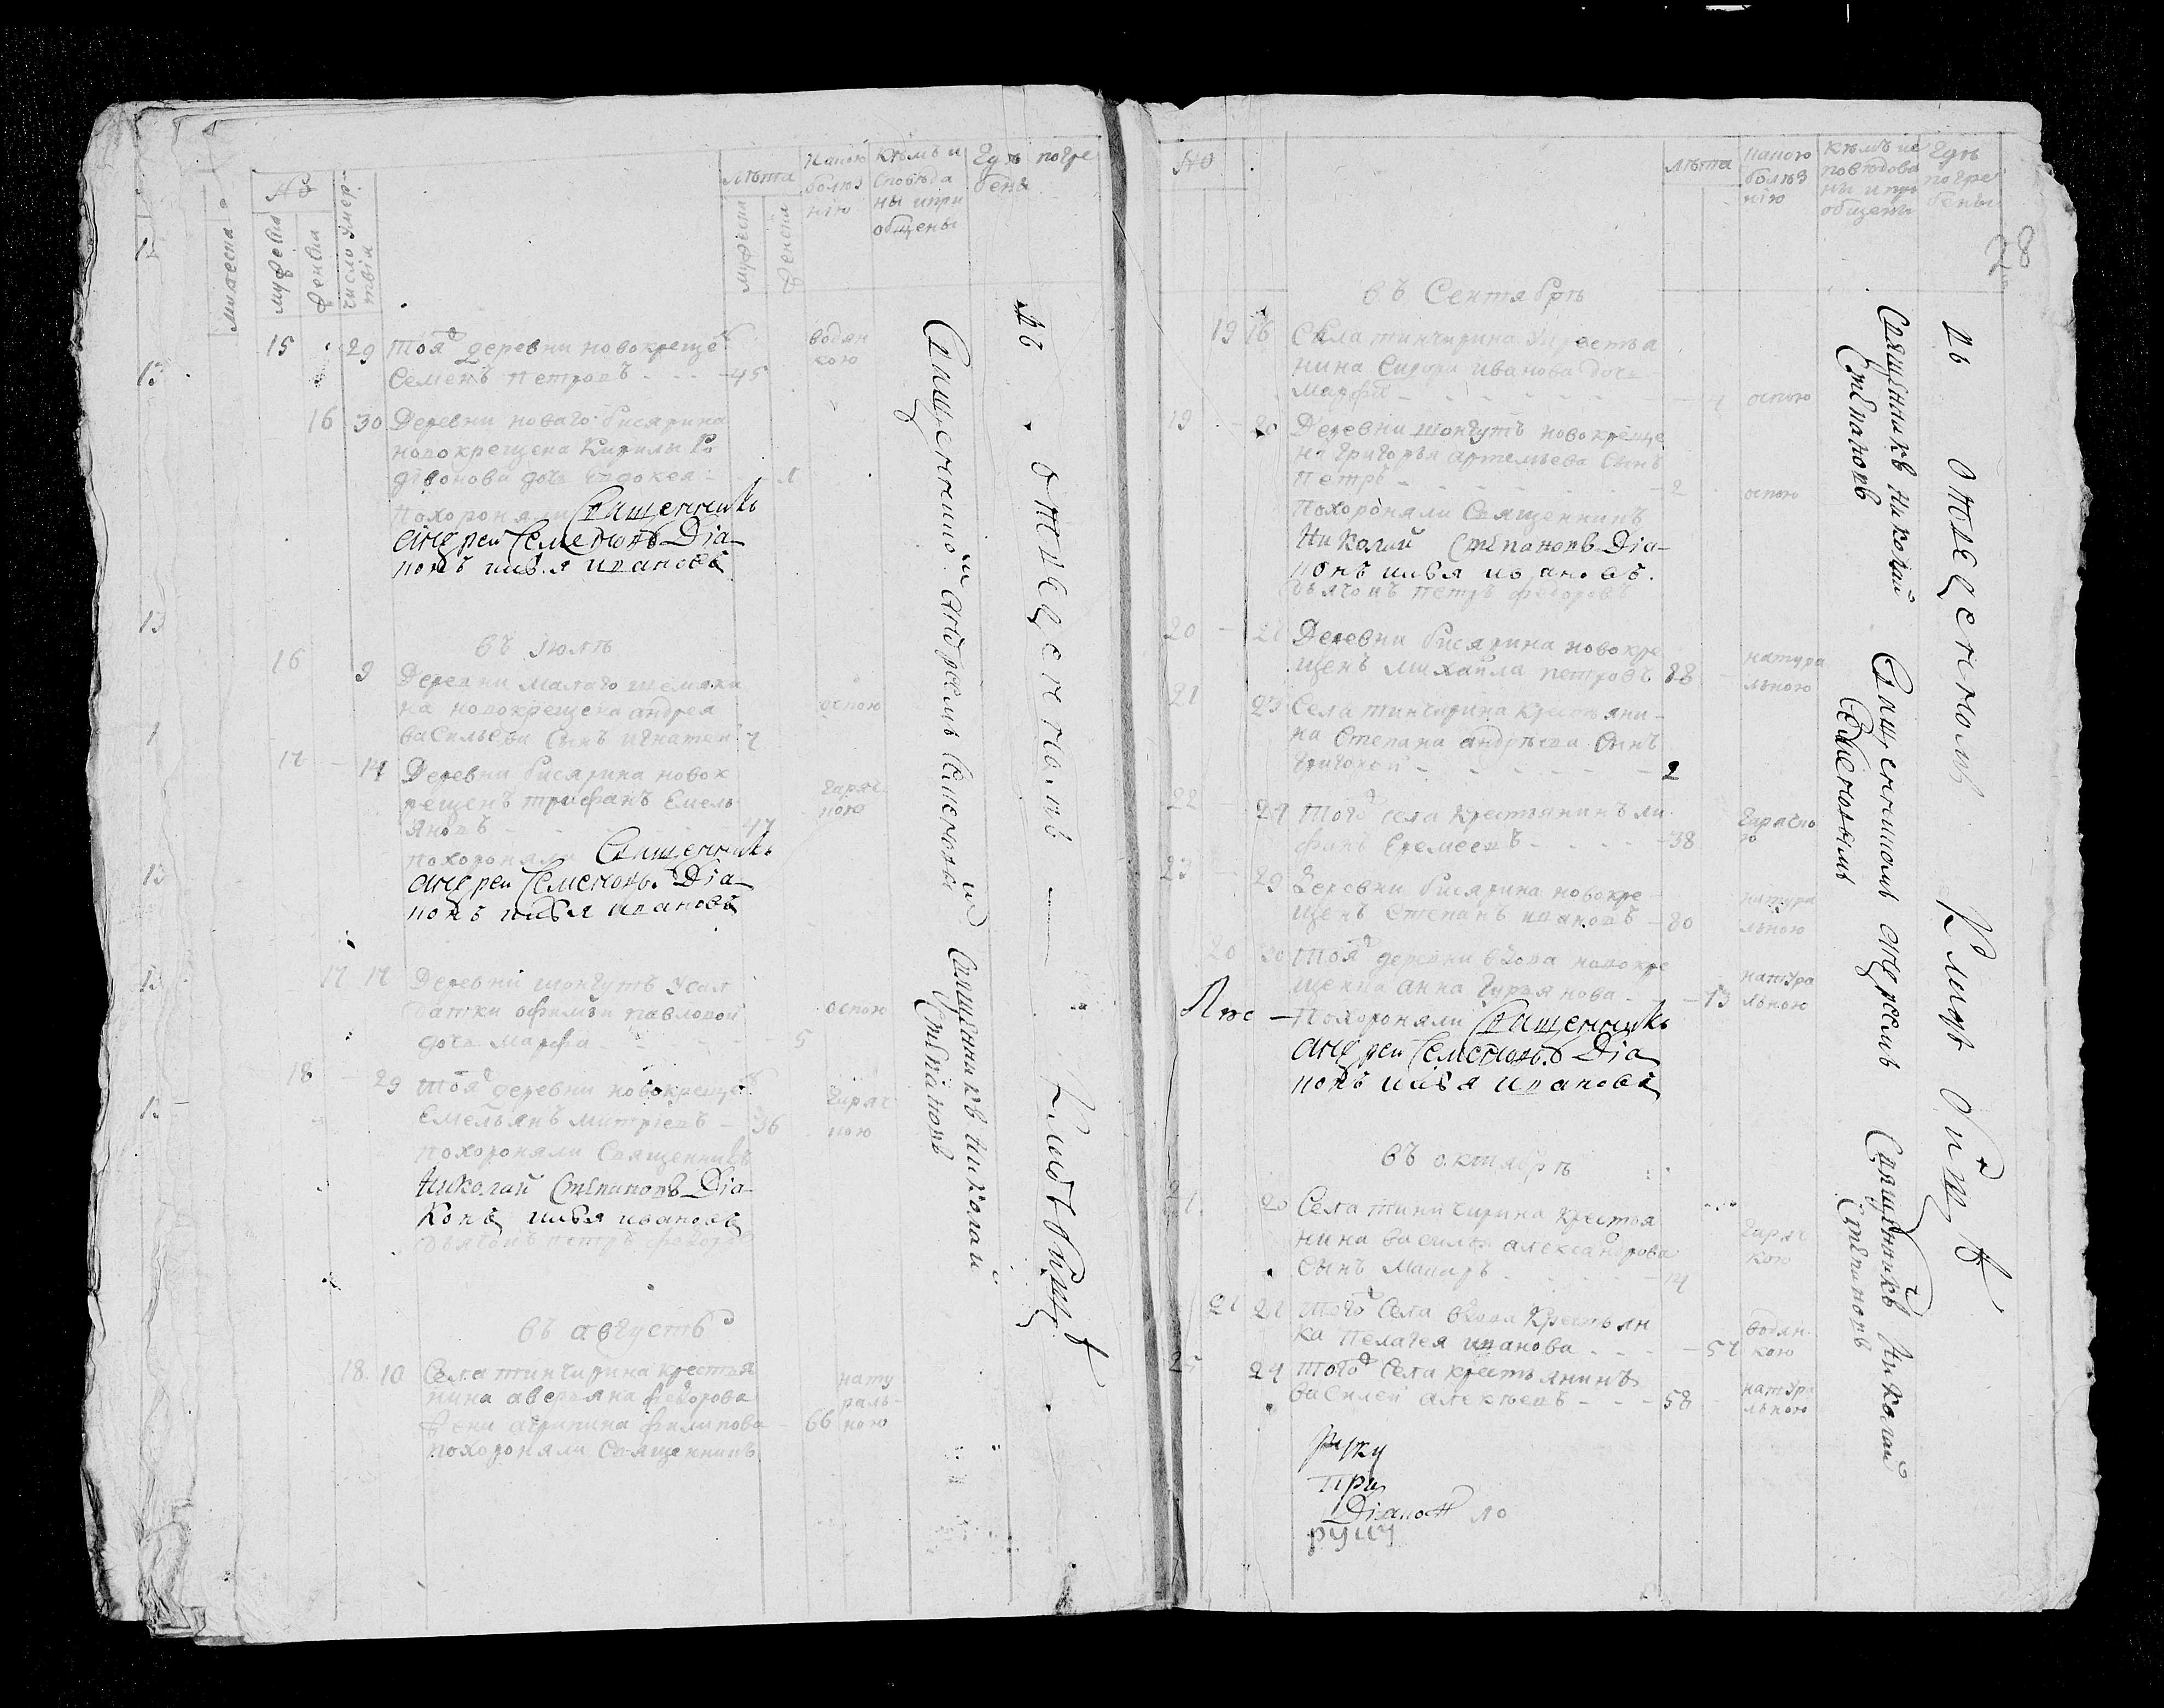 №
мужеска
женска
число умер
твiя
лѣта
мужеска
женска
какою
болѣз
нiю
кѣмъ и
споведа
ны и при
общены
гдѣ погре
бены
15 29 тоя деревни новокреще
Семенъ Петровъ - - - 45
водян
кою
16 30 Деревни новаго бисярина
новокрещена Кирилы Ро
дiвонова дочь Евдокея - 1
похороняли Священникъ
Андреи Семеновъ Dia-
конъ илья ивановъ
въ Июлѣ
16 9 Деревни малаго шемяки
на новокрещена андрея
васильева сынъ игнатеи
оспою
17 14 Деревни бисярина новок
рещенъ трифанъ Емель
яновъ - 47
гаряч
кою
похороняли Священникъ
Андреи Семеновъ Dia-
конъ илья ивановъ
17 17 Деревни шонгутъ усал
датки офимьи павловой
дочь Марфа - - - 5
оспою
18 29 тоя деревни новокреще
Емельянъ митрiевъ - 36
гаряч
кою
похороняли Священникъ
Николаи Степановъ Dia-
конъ илья ивановъ
дьячокъ петръ федоровъ
въ августѣ
18 10 Села тинчирина крестья
нина аверьяна федорова
жена агрипина филипова - 66
нату
раль-
ною
похороняли Священникъ
Священникомъ Андреемъ Семеновы
Священникъ Николаи
Степановъ
въ отведенномъ кладбищѣ
№
лѣта
какою
болѣз
нiю
кѣмъ ис
поведова
ны и при
общены
гдѣ
погре
бены
въ Сентябрѣ
19 16 Села тинчирина крестья
нина Сидора иванова дочь
Марфа - - -
оспою
19 20 Деревни шонгутъ новокреще
на григорья артемьева сынъ
петръ - - - 2
оспою
похороняли Священникъ
Николаи Степановъ Dia-
конъ илья ивановъ.
дьячокъ петръ федоровъ
20 21 Деревни бисярина новокре
щенъ михайла петровъ 88
натура
льною
21 23 Села тинчирина крестьяни-
на Степана андрѣева сынъ
григорей - - - 2
22 24 того села крестьянинъ ли
фанъ Еремеевъ - - - 38
гарячко
ю
23 29 Деревни бисярина новокре-
щенъ Степанъ ивановъ - 80
натура
льною
20 30 тоя деревни вдова новокре
щенка анна гурьянова - - 73
натура
льною
похороняли Священникъ
Андреи Семеновъ Dia
конъ илья ивановъ
въ октябрѣ
20 Села тинчирина крестья
нина василья александрова
сынъ Макаръ - 14
гаряч
кою
21 21 того села вдова крестьян
ка пелагея иванова - - - 57
водян
кою
24 того села крестьянинъ
василей алексѣевъ - - - 58
натура
льною
руку
при
Dianoн ло
Священникъ Николаи
Степановъ
Священникомъ Андреемъ
Семеновымъ
Священникъ Николаи
Степановъ
въ отведенномъ Кладбищѣ